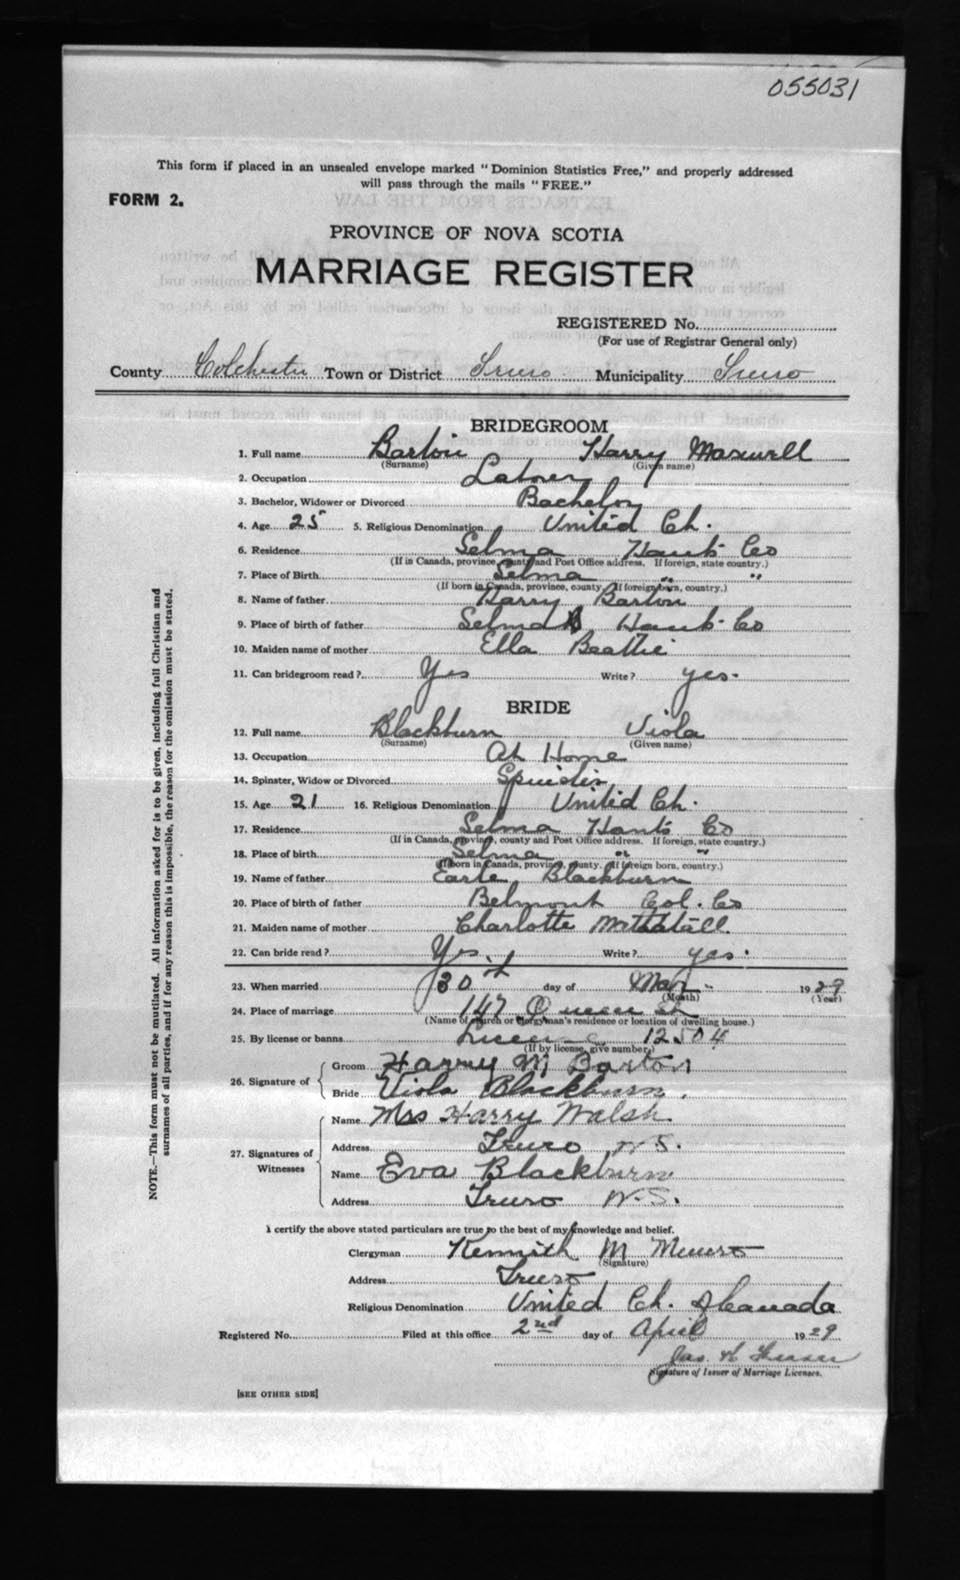 055031
This form if placed in an unsealed envelope marked "Dominion Statistics Free," and properly addressed
will pass through the mails "FREE."
FORM 2.
PROVINCE OF NOVA SCOTIA
MARRIAGE REGISTER
REGISTERED No.
(For use of Registrar General only)
County Colchester Town or District Truro Municipality Truro
BRIDEGROOM
1. Full name Barton Harry Maxwell
(Surname) (Given name)
2. Occupation Laborer
3. Bachelor, Widower or Divorced Bachelor
4. Age 25 5. Religious Denomination United Ch.
6. Residence Selma Hants Co
(If in Canada, province, county and Post Office address. If foreign, state country.)
7. Place of Birth Selma " "
(If born in Canada, province, county. If foreign born, country.)
8. Name of father Harry Barton
9. Place of birth of father Selma Hants Co
10. Maiden name of mother Ella Beattie
11. Can bridegroom read? Yes Write? yes.
BRIDE
12. Full name Blackburn Viola
(Surname) (Given name)
13. Occupation At Home
14. Spinster, Widow or Divorced Spinster
15. Age 21 16. Religious Denomination United Ch.
17. Residence Selma Hants Co
(If in Canada, province, county and Post Office address. If foreign, state country.)
18. Place of birth Selma " "
(If born in Canada, province, county. If foreign born, country.)
19. Name of father Earle Blackburn
20. Place of birth of father Belmont Col. Co
21. Maiden name of mother Charlotte
22. Can bride read? Yes. Write? yes.
23. When married 30th day of Mar 1929
(Month) (Year)
24. Place of marriage 147 Queen St
(Name of church or clergyman's residence or location of dwelling house.)
25. By license or banns License 12504
(If by license, give number)
26. Signature of Groom Harry M Barton
Bride Viola Blackburn.
27. Signatures of Witnesses Name Mrs Harry Walsh
Address Truro N.S.
Name Eva Blackburn
Address Truro N.S.
I certify the above stated particulars are true to the best of my knowledge and belief.
Clergyman Kennith M Munro
(Signature)
Address Truro
Religious Denomination United Ch. of Canada
Registered No. Filed at this office 2nd day of April 1929
Jas. K Fraser
Signature of Issuer of Marriage Licenses.
[SEE OTHER SIDE]
NOTE.—This form must not be mutilated. All information asked for is to be given, including full Christian and
surnames of all parties, and if for any reason this is impossible, the reason for the omission must be stated.